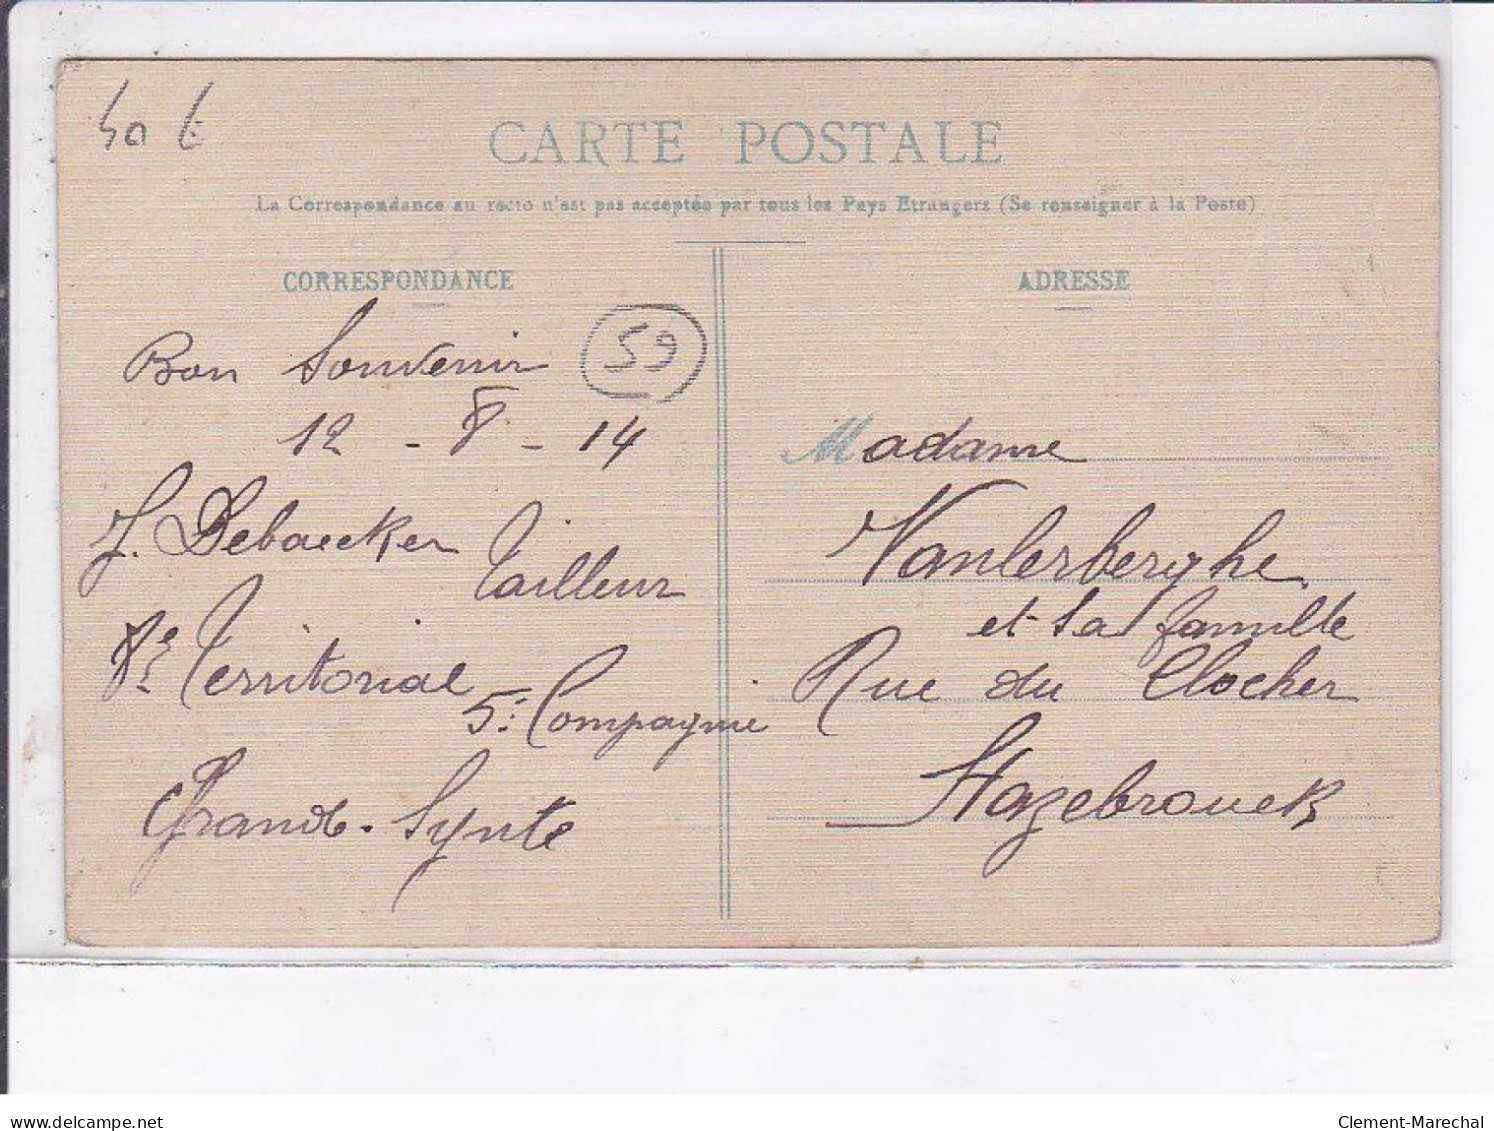 40 €
CARTE POSTALE
La Correspondance au recto n'est pas acceptée par tous les Pays Etrangers (Se renseigner à la Poste)
CORRESPONDANCE
59
Bon Souvenir
12 - 8 - 14
J. Debaecker Tailleur
8e Territorial
5e Compagnie
Grande-Synte
ADRESSE
Madame
Vanlerberghe
et sa famille
Rue du Clocher
Hazebrouck
delcampe.net
Clement-Marechal